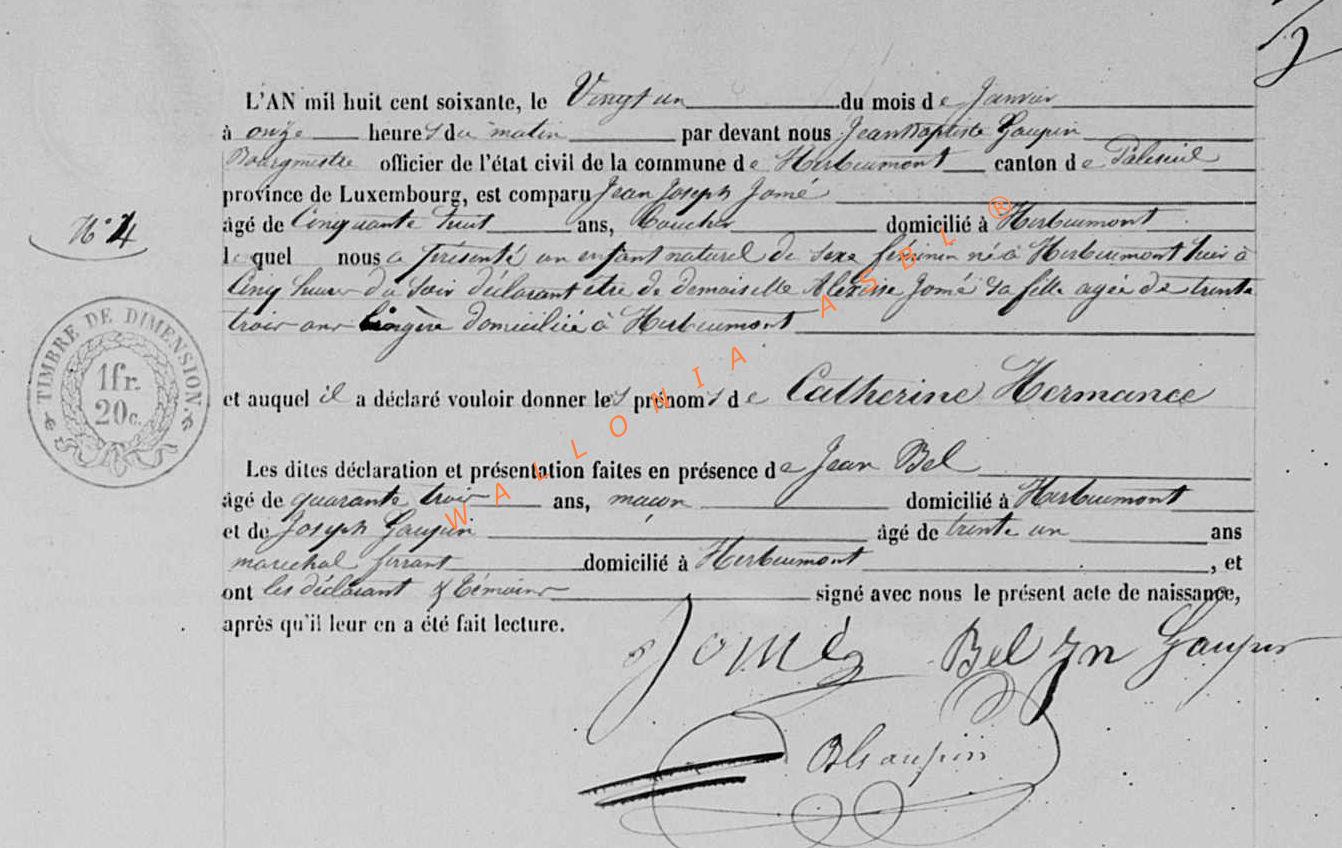 L'AN mil huit cent soixante, le Vingt un du mois de Janvier
à onze heures du matin par devant nous Jean Baptiste Gaupin
Bourgmestre officier de l'état civil de la commune de Herbeumont canton de Paliseul
province de Luxembourg, est comparu Jean Joseph Jomé
âgé de Cinquante huit ans, domicilié à Herbeumont
N° 4
le quel nous a présenté un enfant naturel de sexe féminin né à Herbeumont hier à
Cinq heures du Soir déclarant etre de demoiselle Alexise Jomé sa fille agée de trente
trois ans lingère domiciliée à Herbeumont
TIMBRE DE DIMENSION.
1fr.
20c.
et auquel il a déclaré vouloir donner les prénoms de Catherine Hermance
Les dites déclaration et présentation faites en présence de Jean Bel
âgé de quarante trois ans, maçon domicilié à Herbeumont
et de Joseph Gaupin âgé de trente un ans
marechal ferrant domicilié à Herbeumont, et
ont les déclarant & témoins signé avec nous le présent acte de naissance,
après qu'il leur en a été fait lecture.
Jomé Bel Jn Gaupin
Gaupin
WALLONIA ASBL ®